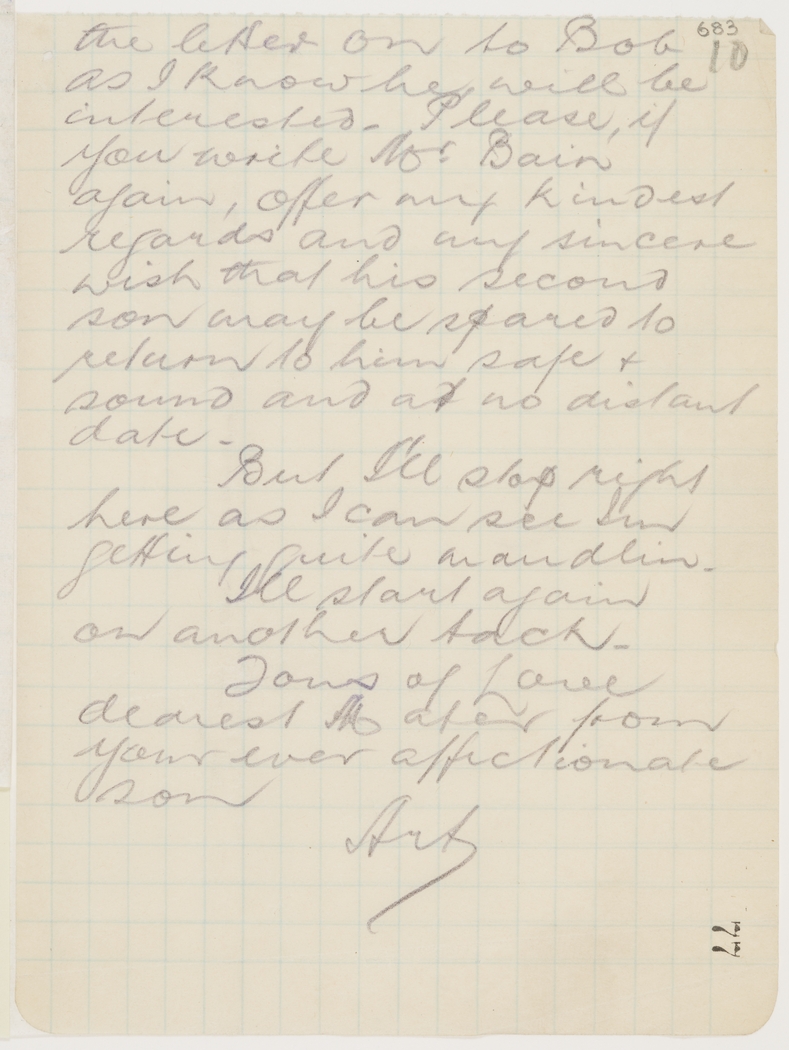 683
10
the letter on to Bob
as I know he will be
interested. Please, if
you write Mr Bain
again, offer my kindest
regards and my sincere
wish that his second
son may be spared to
return to him safe +
sound and at no distant
date.
But I'll stop right
here as I can see I'm
getting quite maudlin.
I'll start again
on another tack.
Tons of Love
dearest Mater from
your ever affectionate
son
Art
77